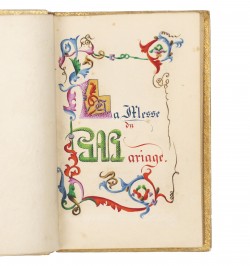 La Messe
du
Mariage.